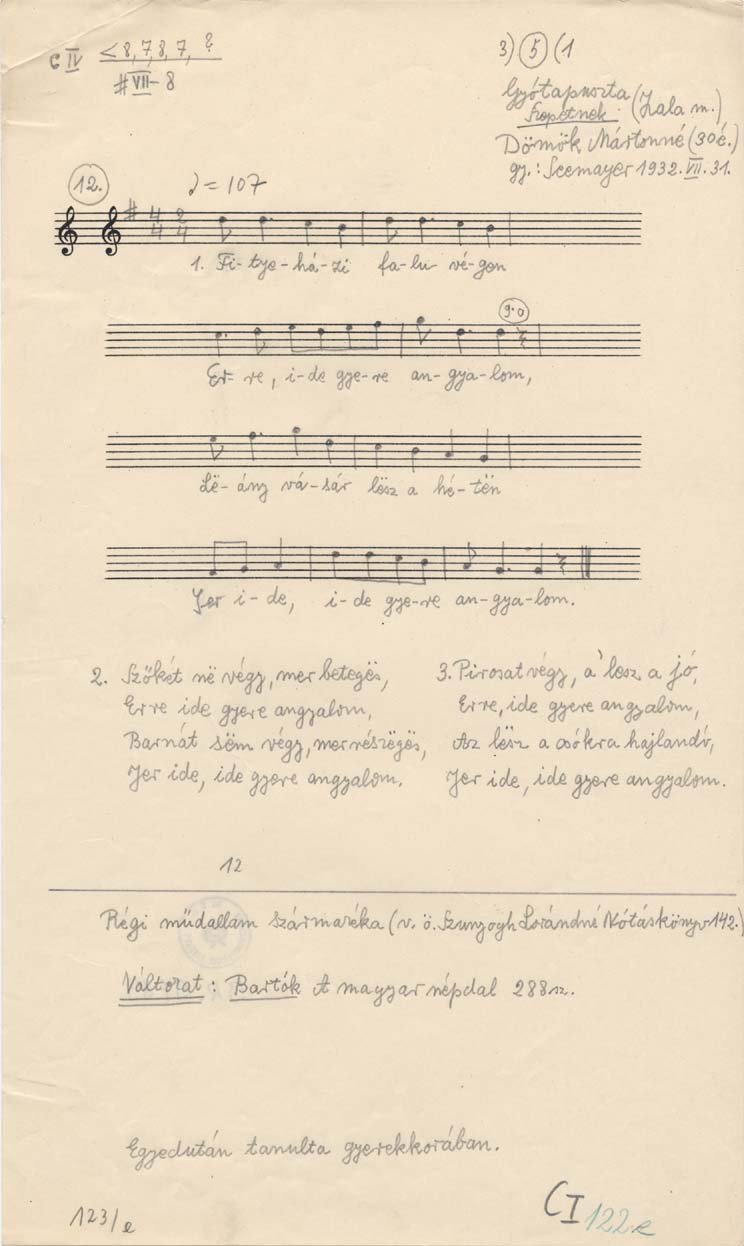 C IV < 8, 7, 8, 7, ?
#VII - 8
3) 5 (1
Gyótapuszta (Zala m.),
Szepetnek
Dömök Mártonné (30 é.)
gy.: Seemayer 1932. VII. 31.
12.
♩ = 107
4/4 2/4
1. Fi-tye-há-zi fa-lu vé-gen
Er-re, i-de gye-re an-gya-lom,
Lë-ány vá-sár lësz a hé-tën
Jer i-de, i-de gye-re an-gya-lom.
2. Szőkét në végy, mer betegës,
Erre ide gyere angyalom,
Barnát sëm végy, mer részëgës,
Jer ide, ide gyere angyalom.
3. Pirosat végy, a' lesz a jó,
Erre, ide gyere angyalom,
Az lësz a csókra hajlandó,
Jer ide, ide gyere angyalom.
12
Régi műdallam származéka (v. ö. Szunyogh Lorándné Nótáskönyv 142.)
Változat: Bartók A magyar népdal 288 sz.
Egyedután tanulta gyerekkorában.
123/e
CI 122e